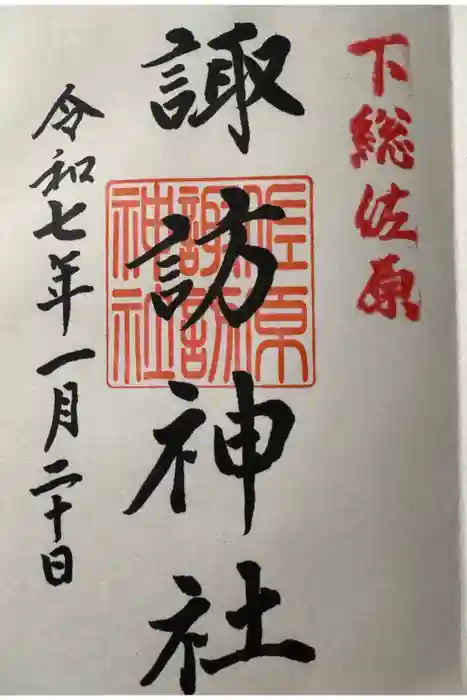 下総佐原
諏訪神社
佐原
諏訪
神社
令和七年一月二十日